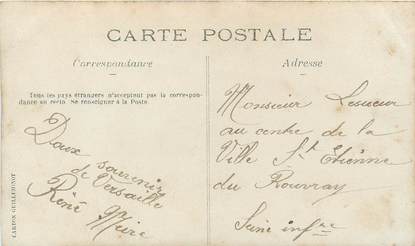 CARTE POSTALE
Correspondance
Adresse
Tous les pays étrangers n'acceptent pas la correspon-
dance au recto. Se renseigner à la Poste.
Doux souvenirs
de Versaille
René Mère
Monsieur Lesueur
au centre de la
Ville St Etienne
du Rouvray
Seine infre
CARTON GUILLEMINOT